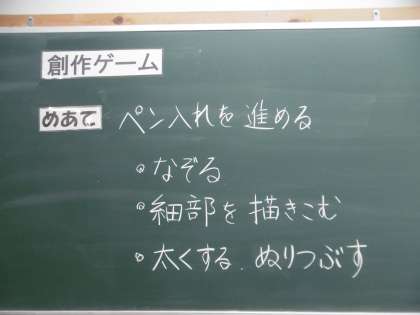 創作ゲーム
めあて ペン入れを進める
・なぞる
・細部を描きこむ
・太くする．ぬりつぶす